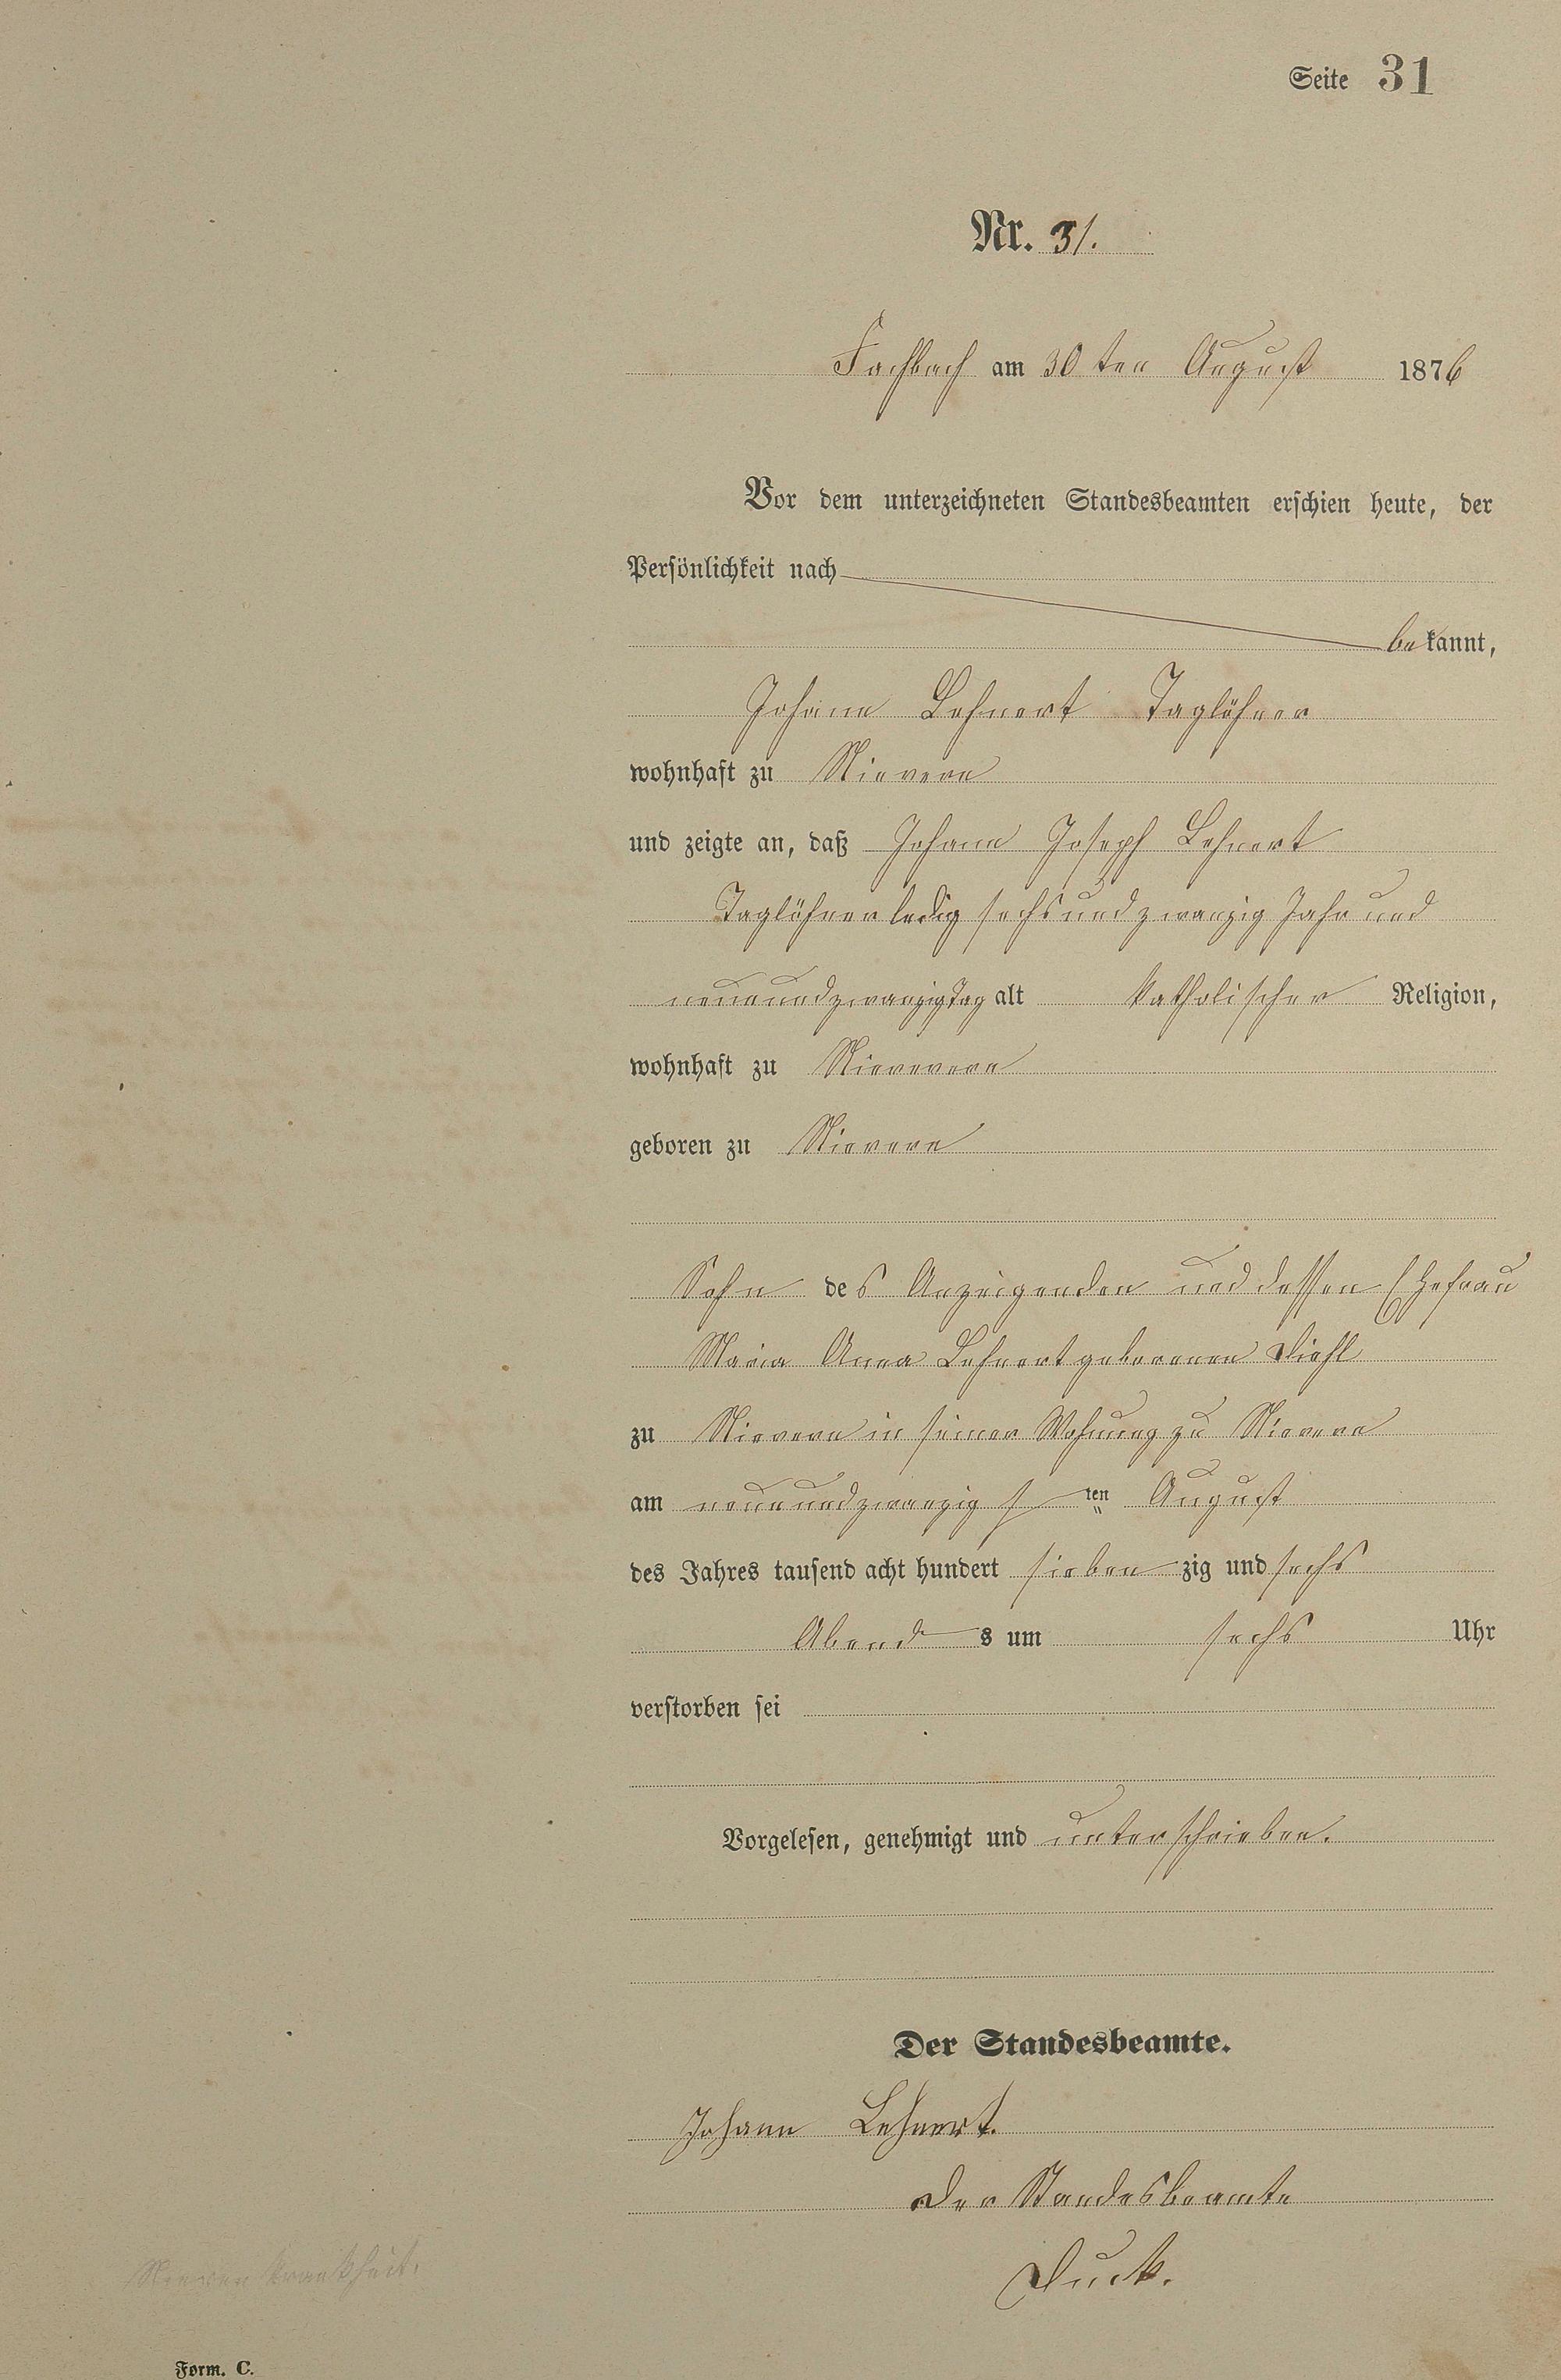 Seite 31
Nr. 31.
Fachbach am 30ten August 1876
Vor dem unterzeichneten Standesbeamten erschien heute, der
Persönlichkeit nach
bekannt,
Johann Lehnert Taglöhner
wohnhaft zu Nievern
und zeigte an, daß Johann Joseph Lehnert
Taglöhner ledig sechsundzwanzig Jahr und
neunundzwanzig Tag alt katholischer Religion,
wohnhaft zu Nievern
geboren zu Nievern
Sohn des Anzeigenden und dessen Ehefrau
Maria Anna Lehnert geborenen Diehl
zu Nievern in seiner Wohnung zu Nievern
am neunundzwanzigsten August
des Jahres tausend acht hundert siebenzig und sechs
Abends um sechs Uhr
verstorben sei
Vorgelesen, genehmigt und unterschrieben.
Der Standesbeamte.
Johann Lehnert.
Der Standesbeamte
Duck.
krankheit.
Form. C.